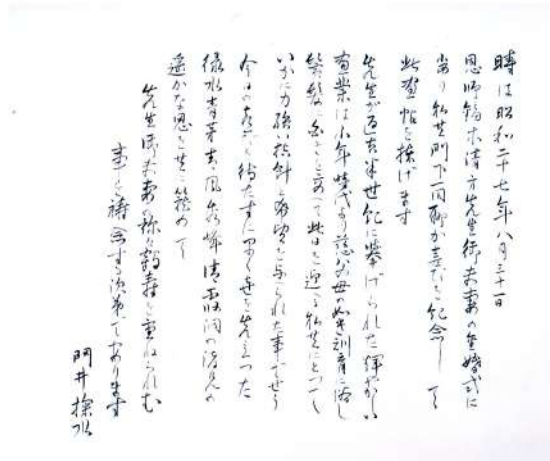 時は昭和二十七年八月三十一日
恩師鏑木清方先生御夫妻の金婚式に
当り私共門下一同聊か喜びを記念し て
此画帖を捧げます
先生が過去半世紀に挙げられた輝かしい
画業は少年時代より慈父母の如き訓育に浴し
鬢髪に白きを交へて此日を迎へる私共にとつて
いかに力強い指針と希望を与へられた事でせう
今日の喜びを待たずに 世を先立つた
緑水青 風 峰 清 洞の諸兄の
遥かな思を共に籠め て
先生御夫妻の弥々鶴寿を重ねられむ
事を祷念する次第であります
門井掬水